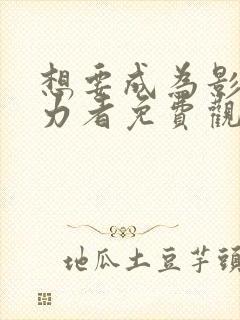 想要成為影
力者免費觀
地瓜土豆芋頭